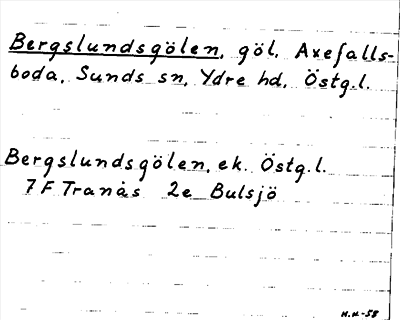 Bergslundsgölen, göl, Axefalls-
boda, Sunds sn, Ydre hd, Östg.l.
Bergslundsgölen, ek. Östg.l.
7 F Tranås 2e Bulsjö
H.H-58